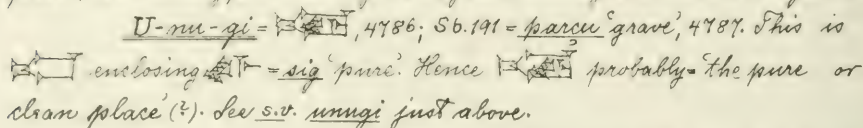 U-nu-gi = , 4786; Sb. 191 = parcu ‘grave’, 4787. This is
enclosing = sig ‘pure’. Hence probably = ‘the pure or
clean place’ (?). See s.v. unugi just above.